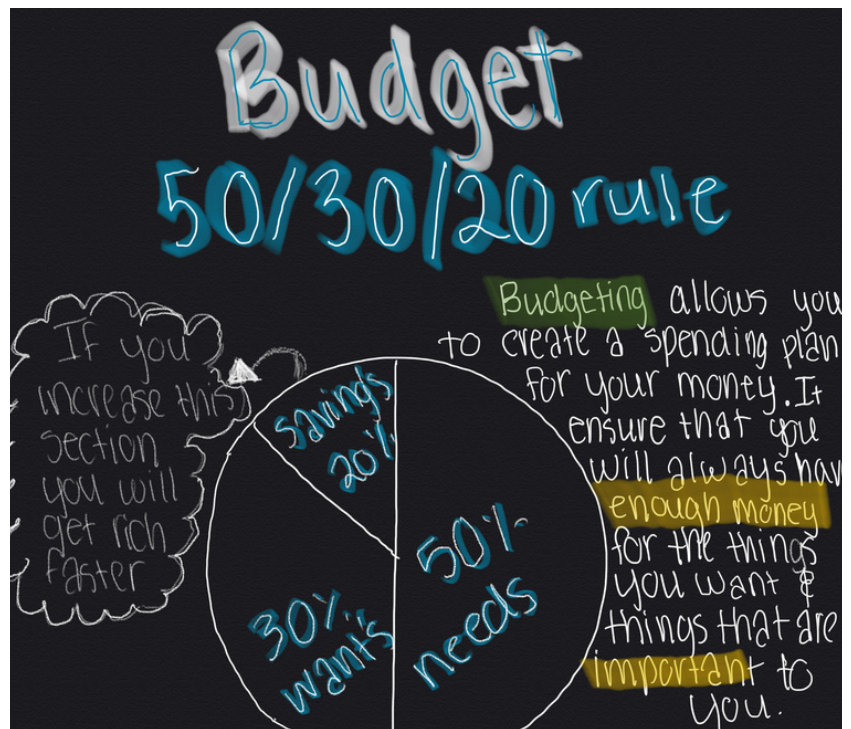 Budget
50/30/20 rule
If you
increase this
section
you will
get rich
faster
savings
20%
50%
needs
30%
wants
Budgeting allows you
to create a spending plan
for your money. It
ensure that you
will always hav
enough money
for the things
you want &
things that are
important to
you.